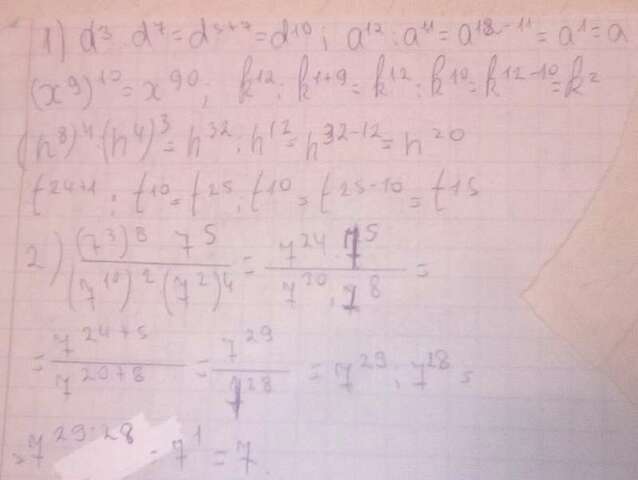 1) d³ · d⁷ = d³⁺⁷ = d¹⁰; a¹² : a¹¹ = a¹²⁻¹¹ = a¹ = a
(x⁹)¹⁰ = x⁹⁰; k¹² : k¹⁺⁹ = k¹² : k¹⁰ = k¹²⁻¹⁰ = k²
(n⁸)⁴ : (n⁴)³ = n³² : n¹² = n³²⁻¹² = n²⁰
t²⁴⁺¹ : t¹⁰ = t²⁵ : t¹⁰ = t²⁵⁻¹⁰ = t¹⁵
2) (7³)⁸ 7⁵ / (7¹⁰)² (7²)⁴ = 7²⁴ · 7⁵ / 7²⁰ · 7⁸ =
= 7²⁴⁺⁵ / 7²⁰⁺⁸ = 7²⁹ / 7²⁸ = 7²⁹ : 7²⁸ =
= 7²⁹⁻²⁸ = 7¹ = 7